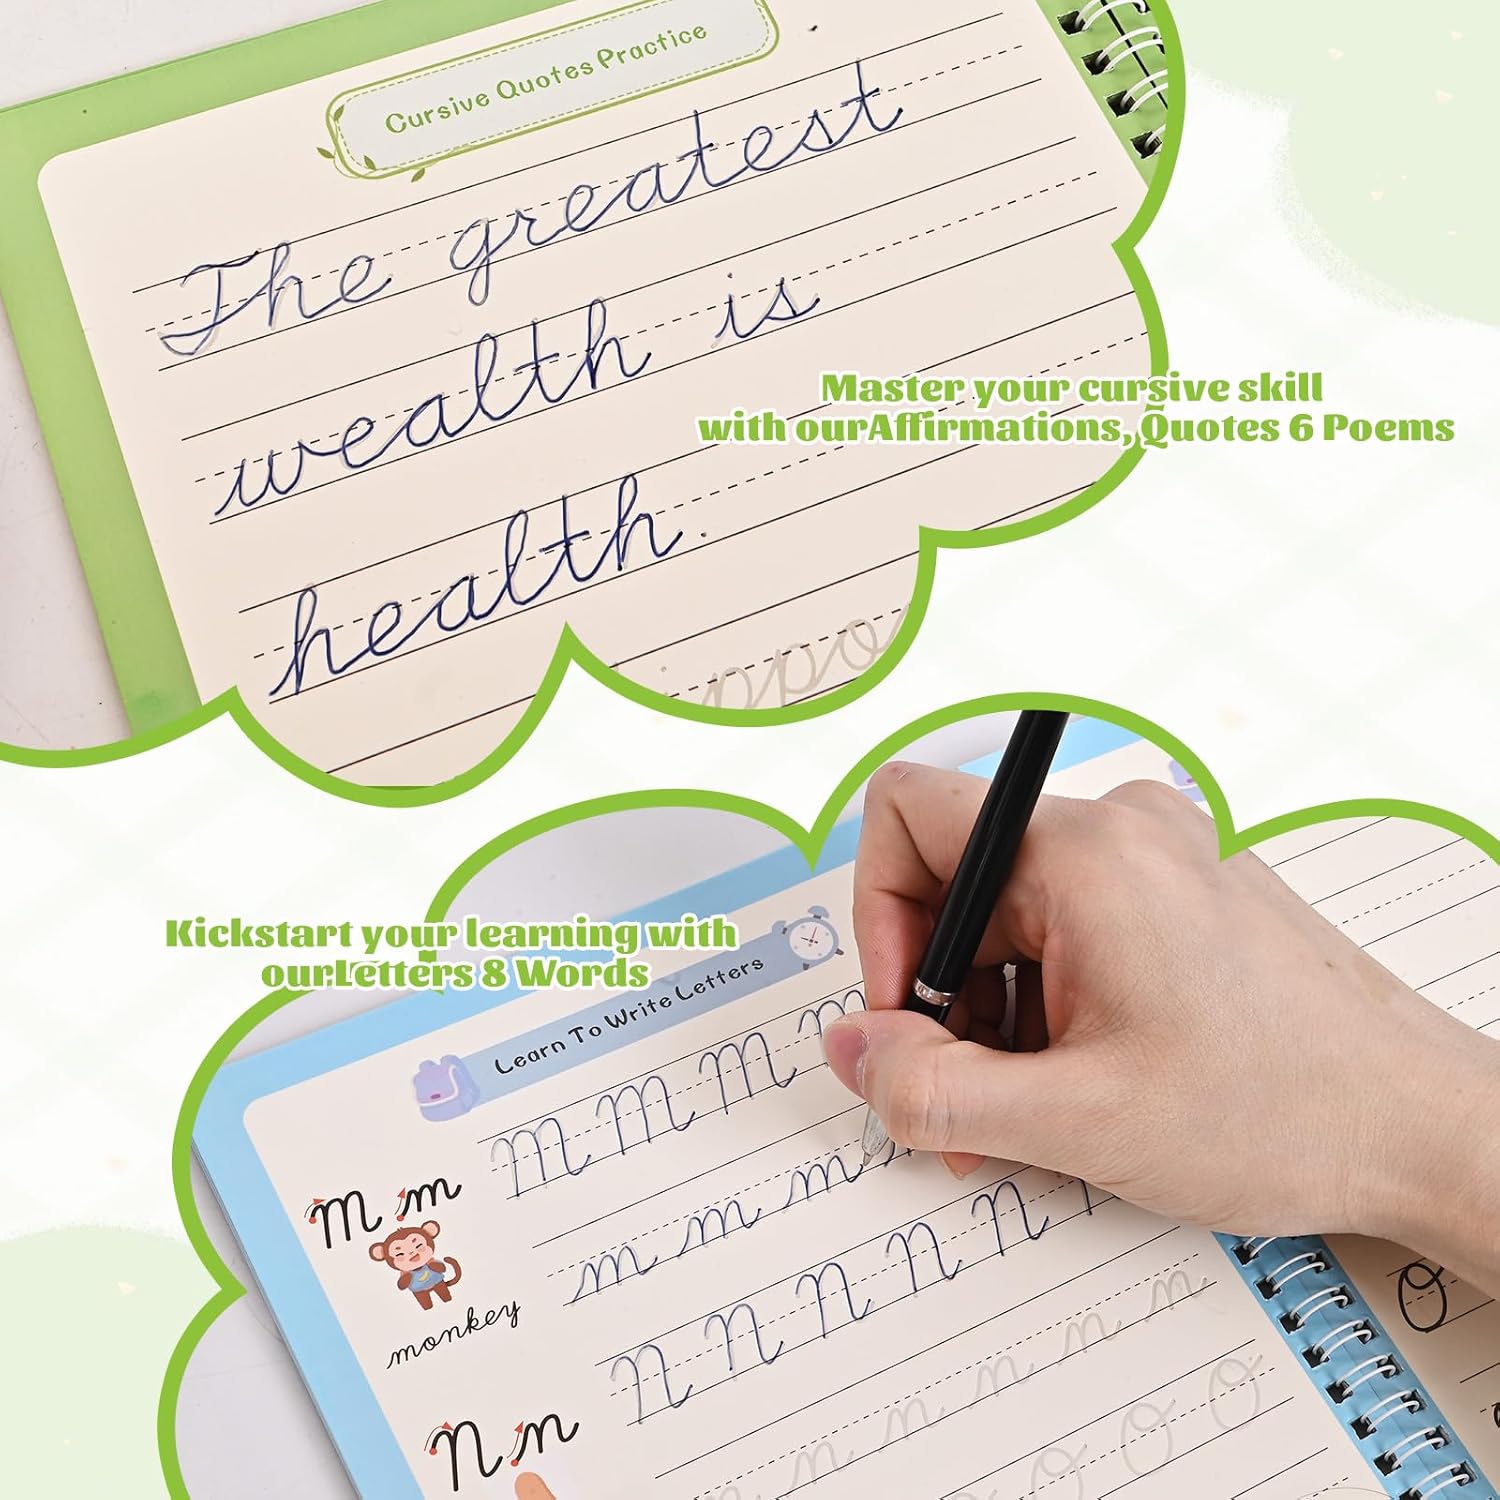 Cursive Quotes Practice
The greatest
wealth is
health.
ippo
Master your cursive skill
with ourAffirmations, Quotes 6 Poems
Kickstart your learning with
ourLetters 8 Words
Learn To Write Letters
M m
monkey
M M M M
m m m m
N n
N N N N N N
n n n n n
O O O
O